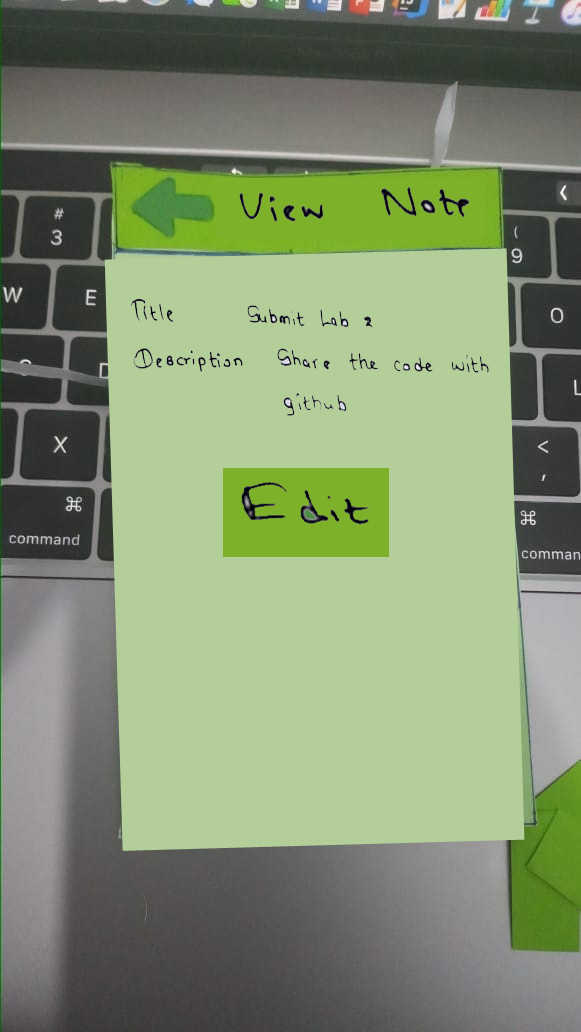 View Note
# 3
( 9
W E
O
Title Submit Lab 2
Description Share the code with
github
D
L
X
< ,
Edit
⌘ command
⌘ comman